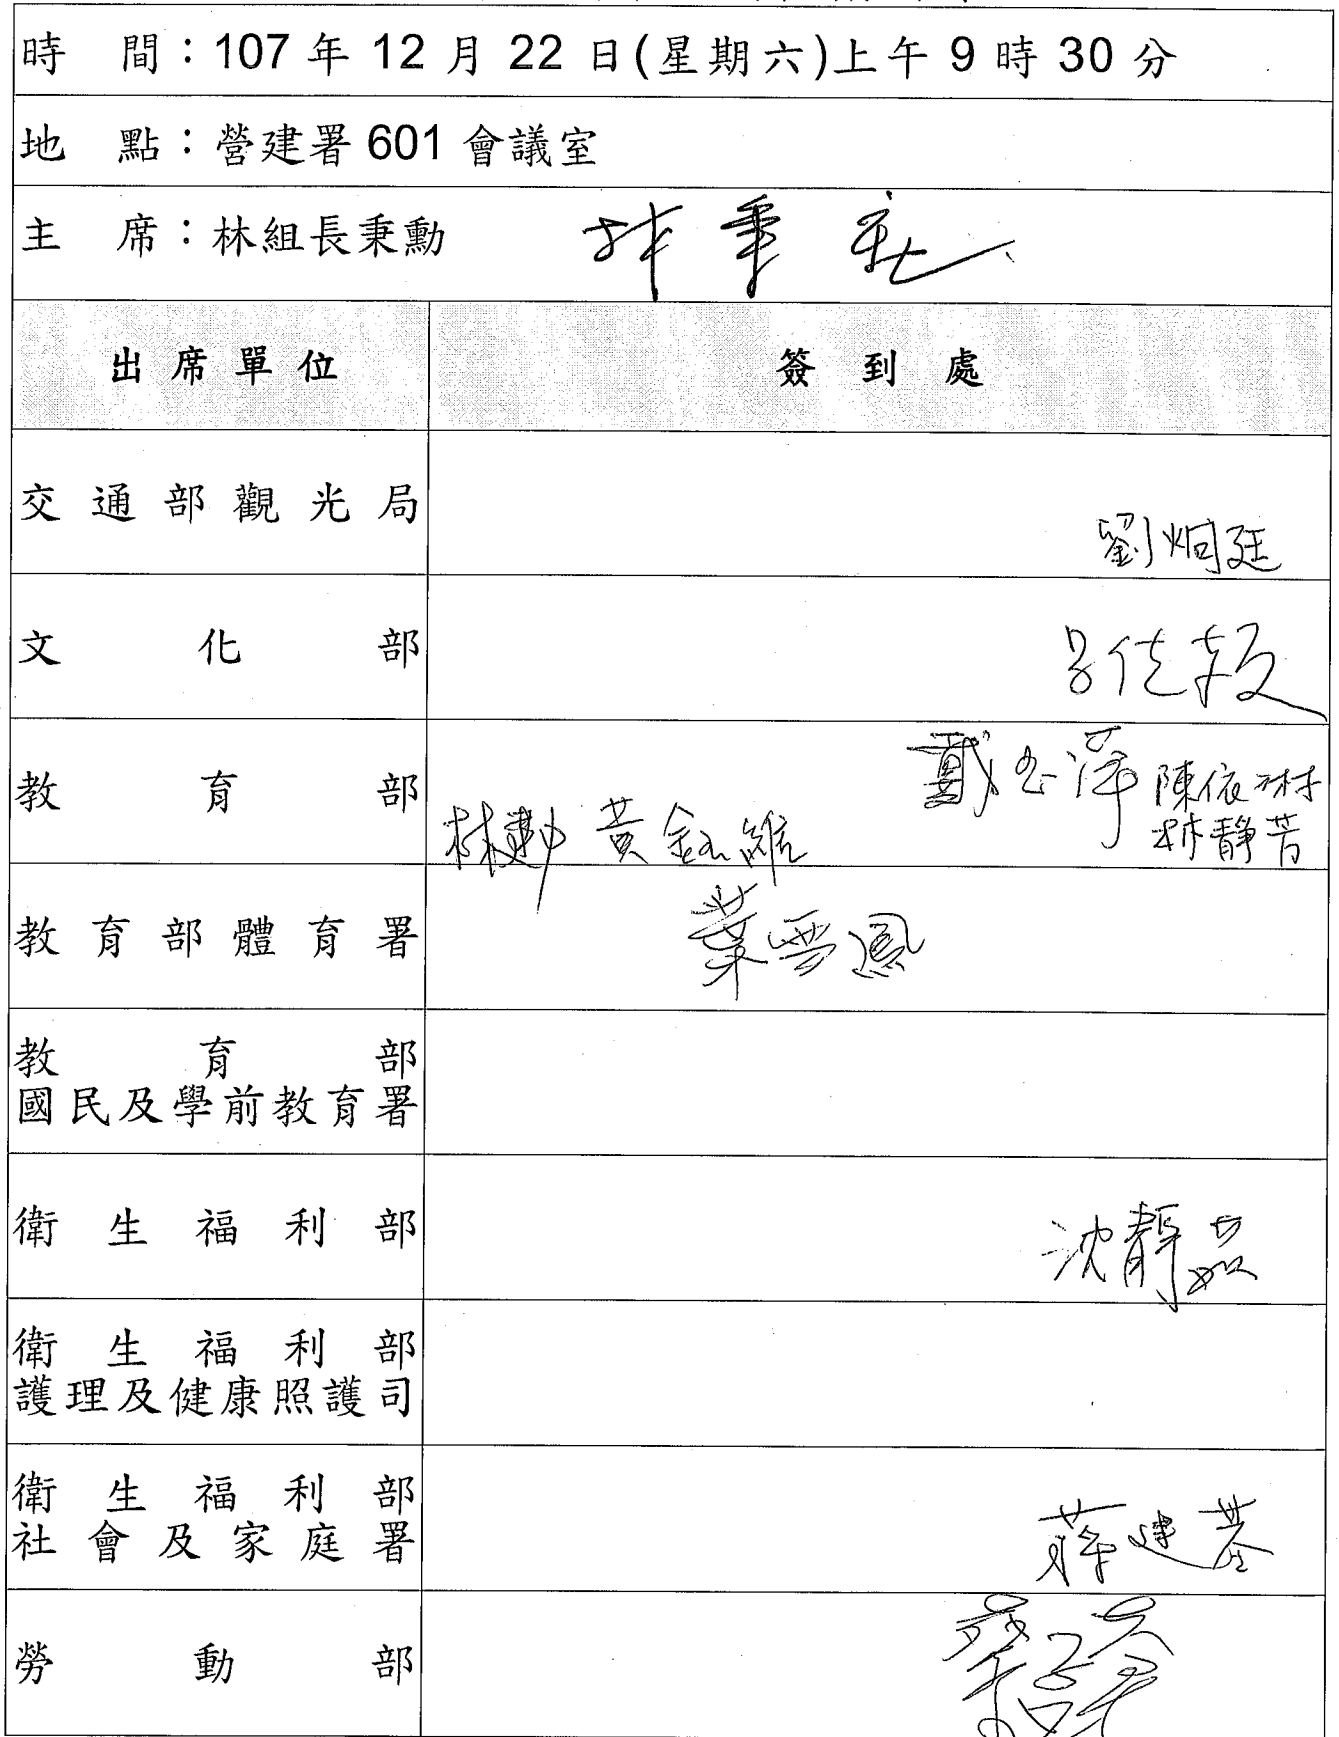 時　間：107 年 12 月 22 日(星期六)上午 9 時 30 分
地　點：營建署 601 會議室
主　席：林組長秉勳 林秉勳
出席單位 簽到處
交通部觀光局 劉炯廷
文化部 呂佳穎
教育部 戴玉萍 陳依琳
林勤 黃鈺維 林靜芳
教育部體育署 葉雲鳳
教育部
國民及學前教育署
衛生福利部 沈靜茹
衛生福利部
護理及健康照護司
衛生福利部
社會及家庭署 蔣建基
勞動部